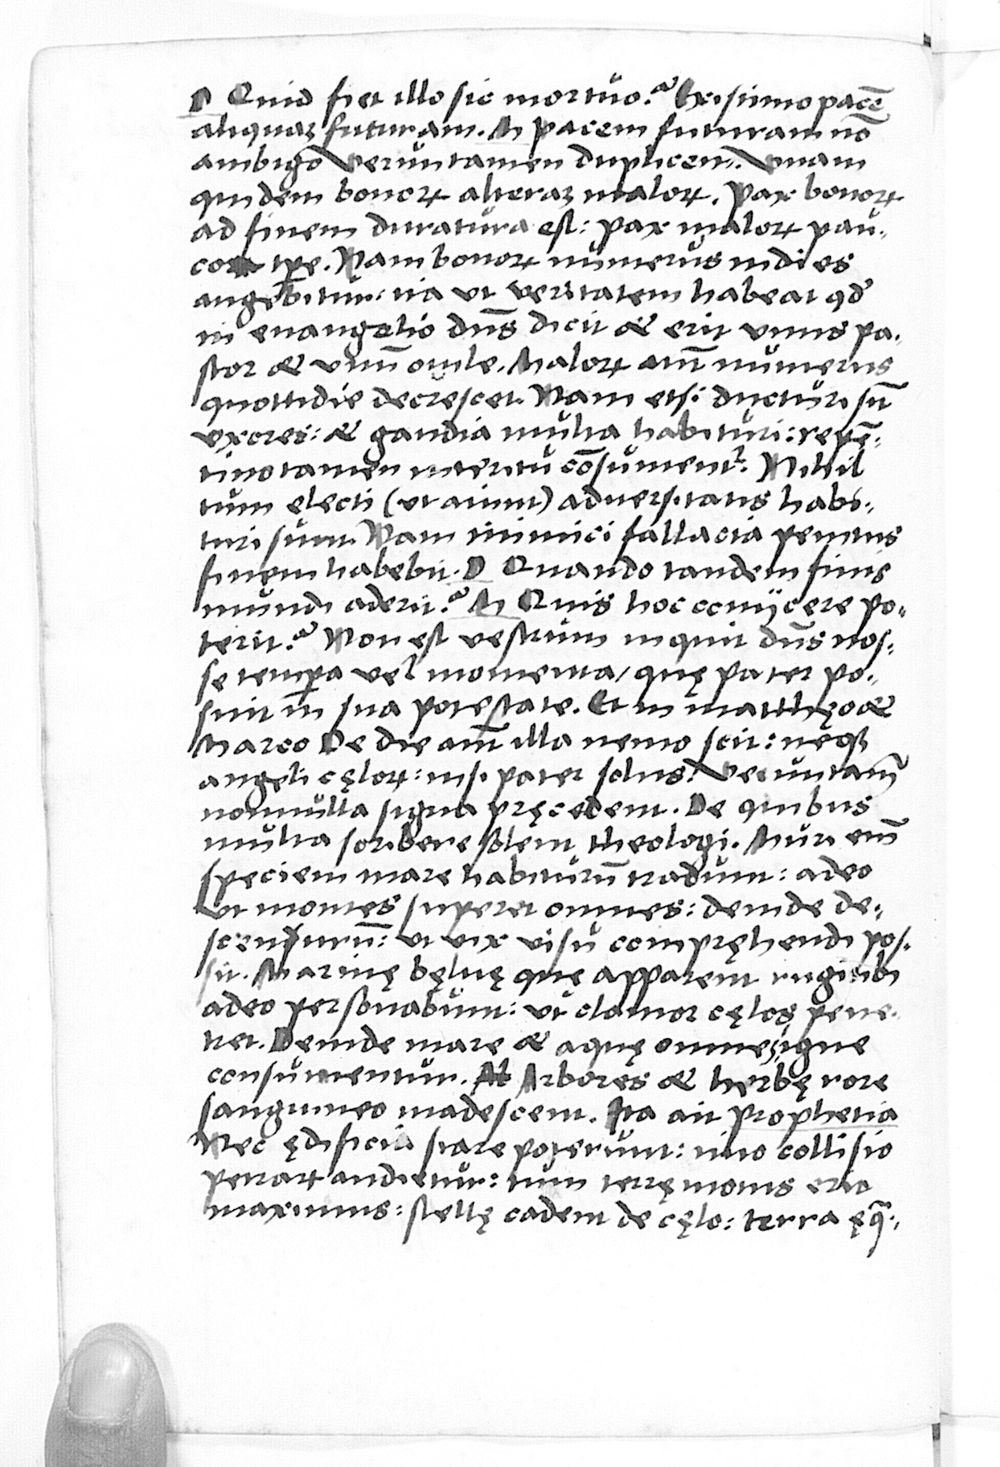 D Quid fiet illo sic mortuo? Existimo pacē
aliquaꝫ futuram. M pacem futuram nō
ambigo Veruntamen duplicem. Vnam
quidem bonoꝝ alteraꝫ maloꝝ. Pax bonoꝝ
ad finem duratura est: pax maloꝝ pau-
co tꝑe. Nam bonoꝝ numerus indies
augebitur: ita vt veritatem habeat qđ
in euangelio dn̄s dicit & erit vnus pa-
stor & vnū ouile. Maloꝝ aut̄ numerus
quottidie decrescet. Nam etsi ducturi sūt
vxores: & gaudia multa habituri: repē-
tino tamen interitu cōsument᷑. Nihil
tum ęlecti (vt aiunt) aduersitatis habi-
turi sunt. Nam inimici fallacia penitus
finem habebit. D Quando tandem finis
mundi aderit? M Quis hoc coniicere po-
terit? Non est vestrum inquit dn̄s nos-
se tempora vel momenta, quę pater po-
suit in sua potestate. Et in matthęo &
Marco De die aut̄ illa nemo scit: neqꝫ
angeli cęloꝝ: nisi pater solus. Veruntam̄
nonnulla signa pręcedent. De quibus
multa scribere solent theologi. Muri em̄
speciem mare habiturū tradunt: adeo
vt montes superet omnes: deinde de-
scensurū: vt vix visu compręhendi pos-
sit. Marinę bęluę quę apparent rugitibus
adeo personabunt: vt clamor cęlos pene-
tret. Deinde mare & aquę omnes igne
consumentur. Arbores & herbę rore
sanguineo madescent. Ita ait prophetia
Nec ędificia stare poterunt: imo collisio
petraꝝ audietur: tum terrę motus erit
maximus: stellę cadent de cęlo: terra ęqua-